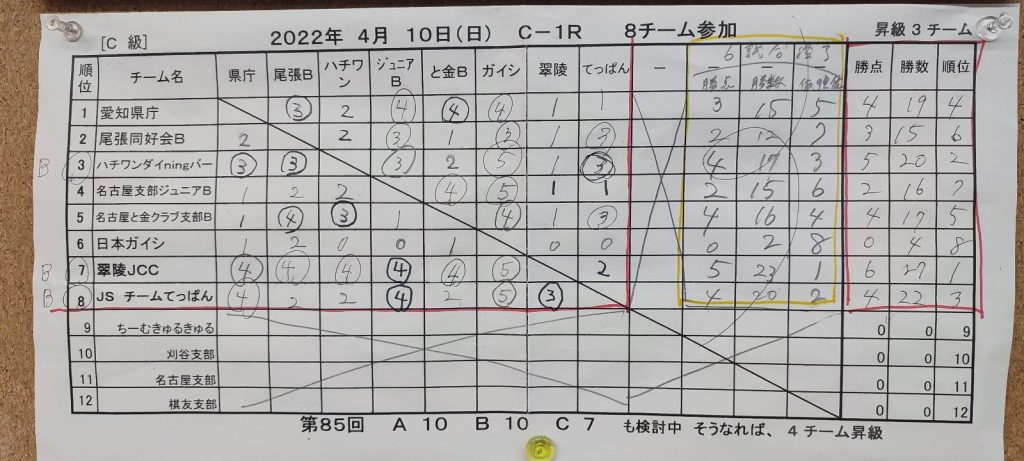 [C 級] 2022年 4月 10日(日) C-1R 8チーム参加 昇級 3 チーム
順位 チーム名 県庁 尾張B ハチワン ジュニアB と金B ガイシ 翠陵 てっぱん ー 6試合終了 勝点 勝数 順位
勝点 勝数
1 愛知県庁 ③ 2 ④ ④ ④ 1 1 3 15 5 4 19 4
2 尾張同好会B 2 2 ③ 1 ③ 1 ③ 2 12 7 3 15 6
B 3 ハチワンダイningバー ③ ③ ③ 2 ⑤ 1 ③ 4 17 3 5 20 2
4 名古屋支部ジュニアB 1 2 2 ④ ⑤ 1 1 2 15 6 2 16 7
5 名古屋と金クラブ支部B 1 ④ ③ 1 ④ 1 ③ 4 16 4 4 17 5
6 日本ガイシ 1 2 0 0 1 0 0 0 2 8 0 4 8
B 7 翠陵JCC ④ ④ ④ ④ ④ ⑤ 2 5 23 1 6 27 1
B 8 JS チームてっぱん ④ 2 2 ④ 2 ⑤ ③ 4 20 2 4 22 3
9 ちーむきゅるきゅる 0 0 9
10 刈谷支部 0 0 10
11 名古屋支部 0 0 11
12 棋友支部 0 0 12
第85回 A 10 B 10 C 7 も検討中 そうなれば、 4 チーム昇級